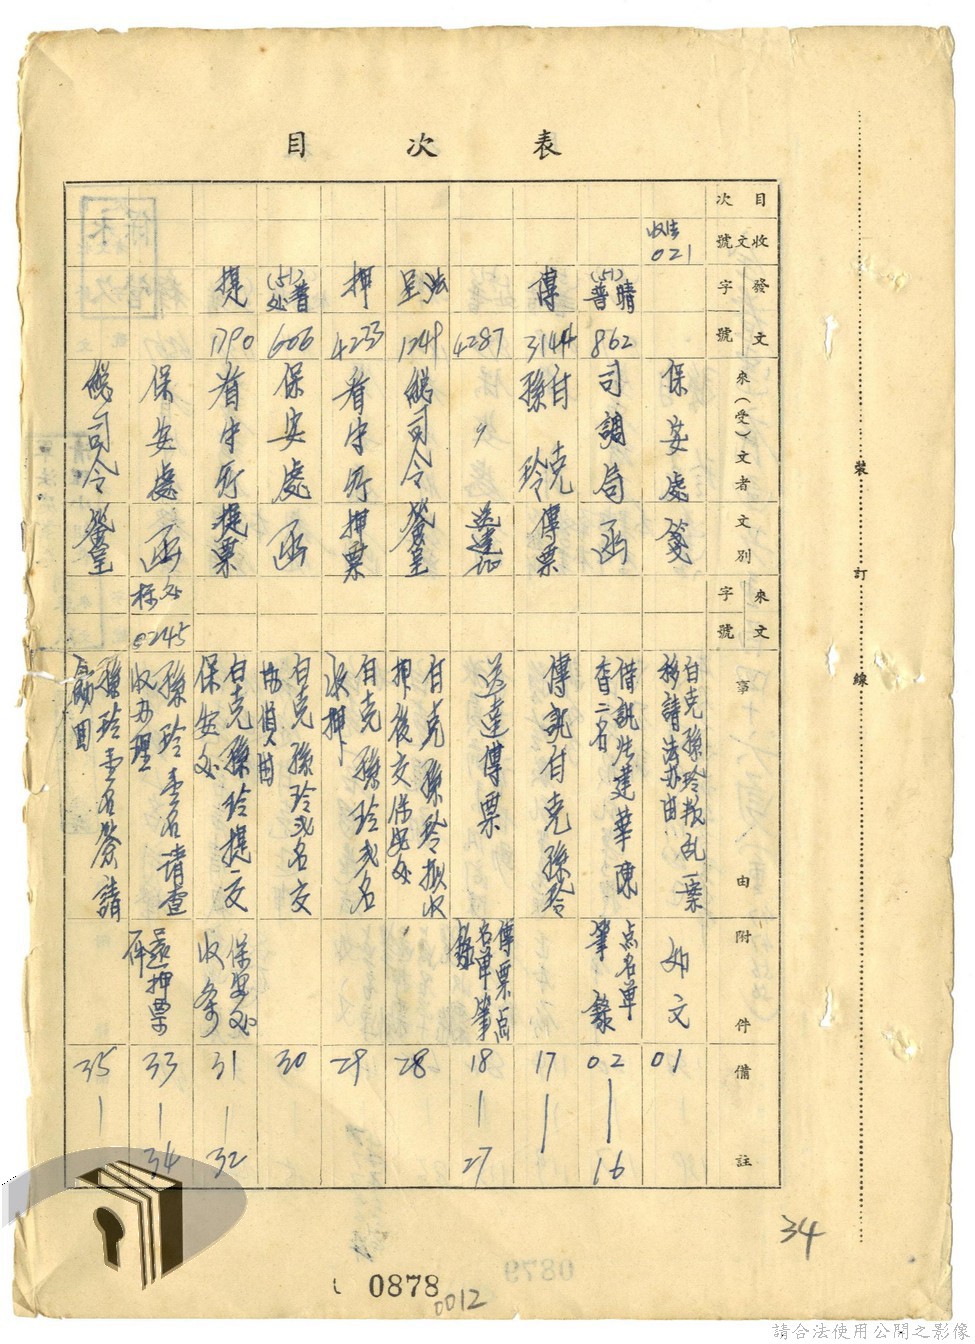 目次表
目次
收文號
發文字號
來(受)文者
文別
來文字號
事由
附件
備註
收法 021
保安處
簽
白克孫玲叛乱一案
移請法办由
如文
01
(51)晴普
862
司調局
函
借訊法建華陳
香二名
点名單
筆錄
02—16
傳
3144
白克
孫玲
傳票
傳訊白克孫玲
17—
4287
〃
送達証
送達傳票
傳票点
名單筆
錄
18—27
法呈
1249
總司令
簽呈
白克孫玲擬收
押後交保安处
28
押
4233
看守所
押票
白克孫玲弍名
收押
29
(51)普处
606
保安處
函
白克孫玲弍名交
30
提
1790
看守所
提票
白克孫玲提交
保安处
保安处
收条
31—32
保安處
函
0245
孫玲壹名請查
收办理
還押票
33—34
總司令
簽呈
孫玲壹名簽請
35—
裝訂線
34
0878
0012
0879
請合法使用公開之影像